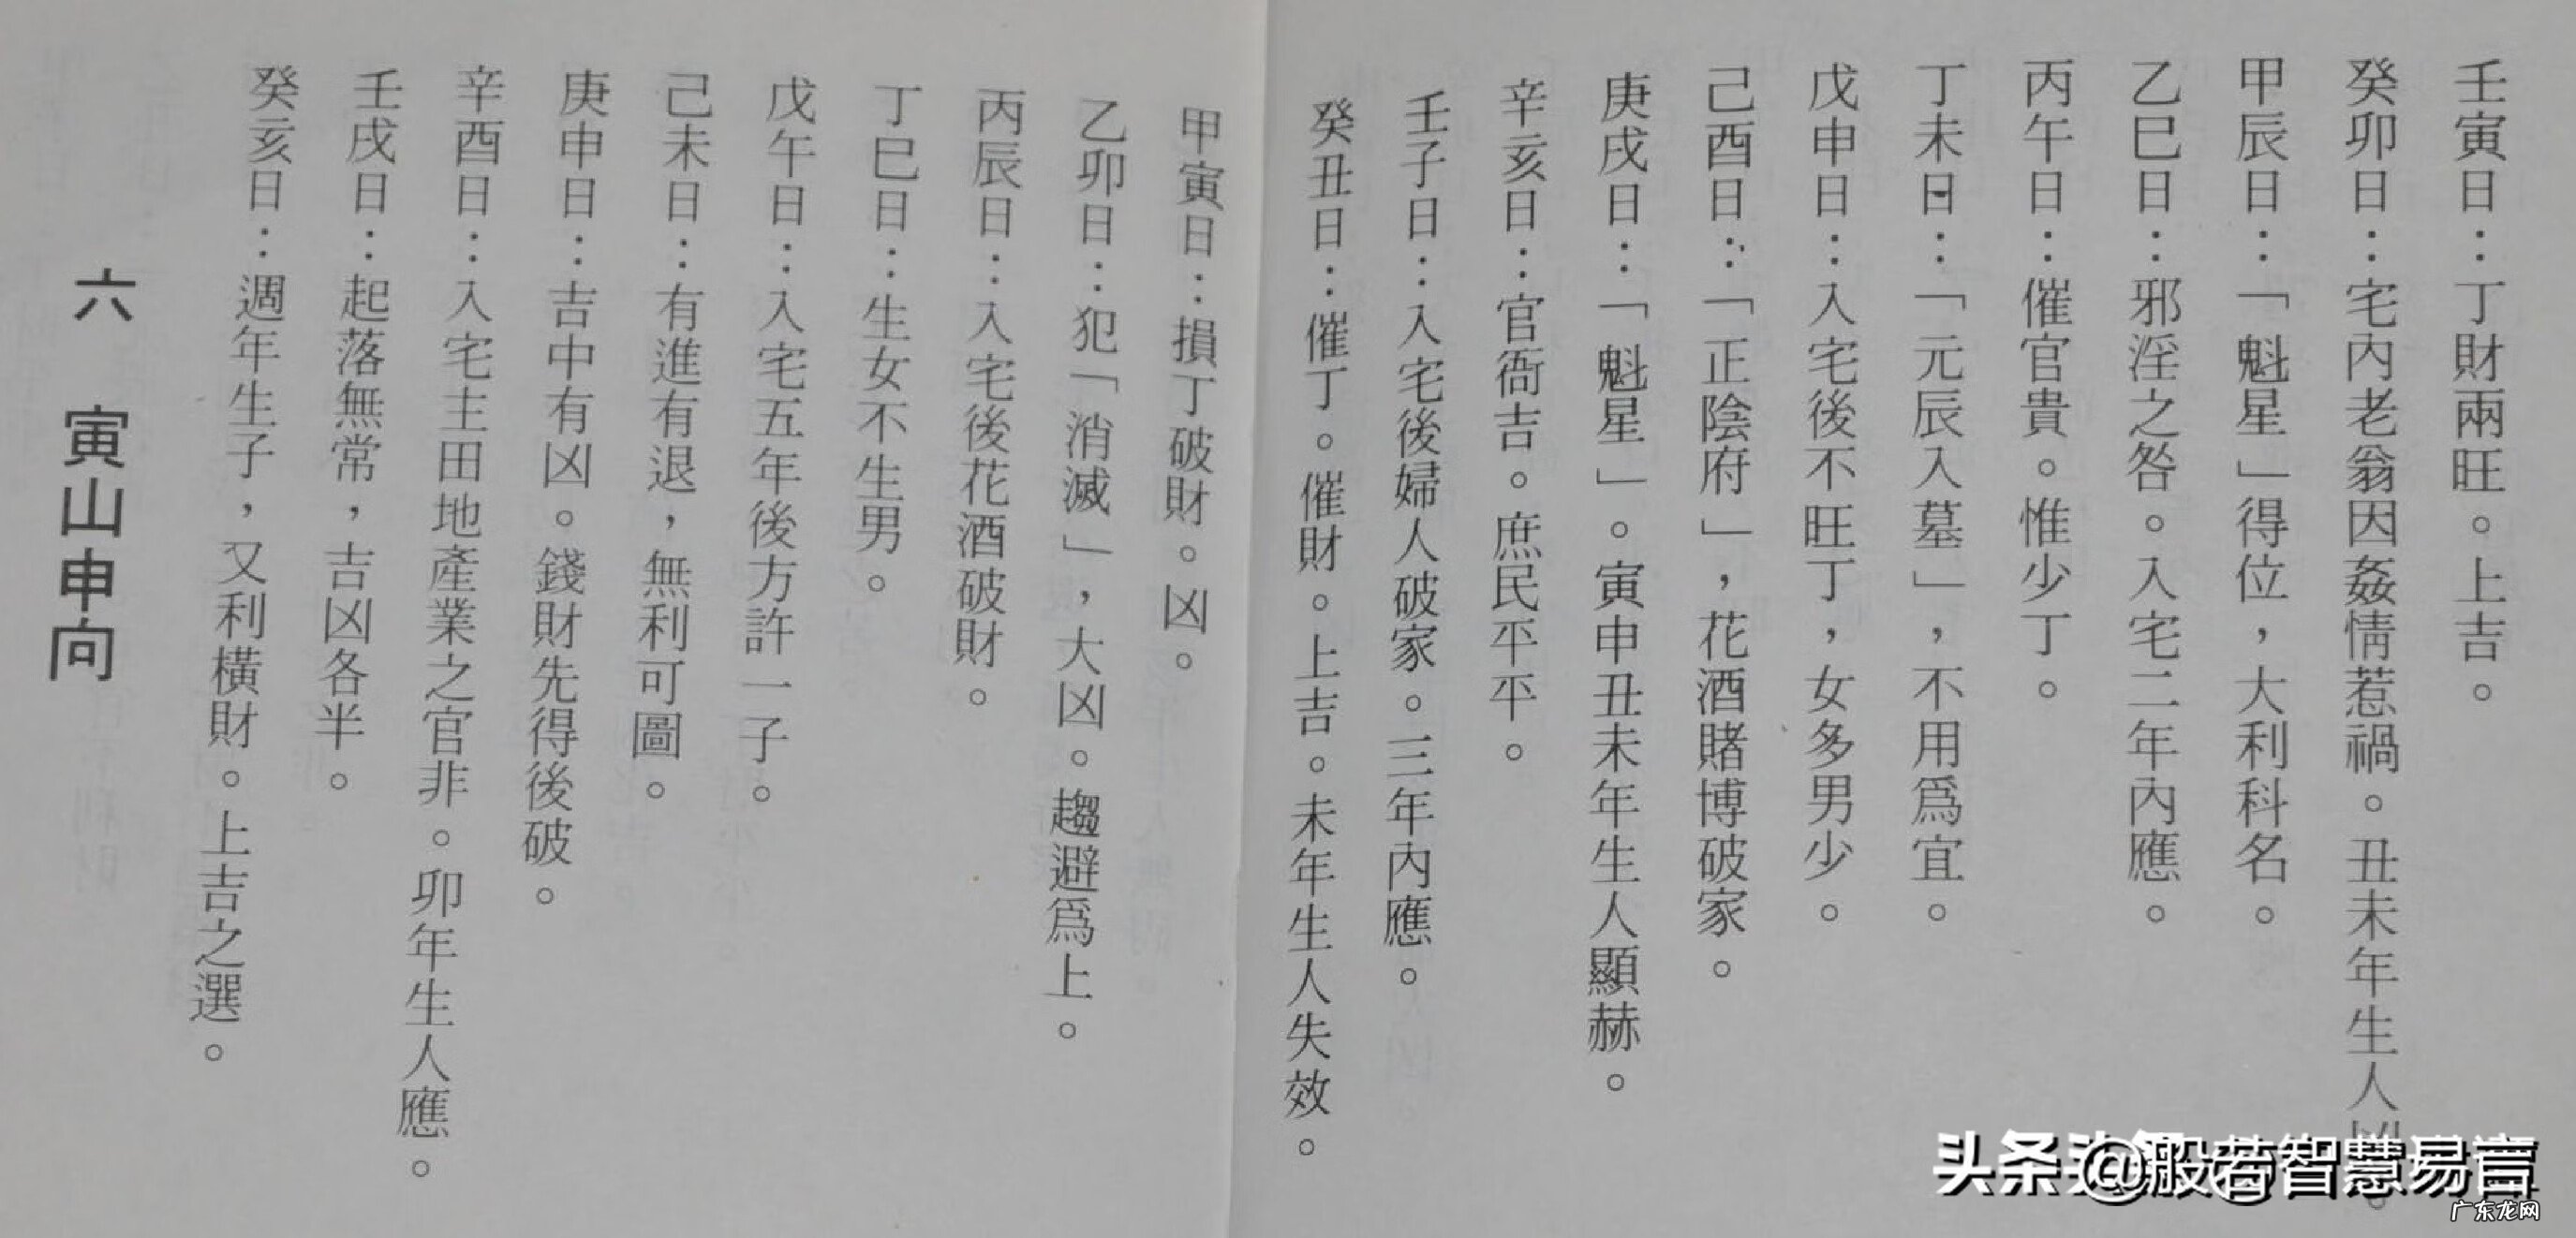 壬寅日：丁財兩旺。上吉。
癸卯日：宅內老翁因姦情惹禍。丑未年生人凶。
甲辰日：「魁星」得位，大利科名。
乙巳日：邪淫之咎。入宅二年內應。
丙午日：催官貴。惟少丁。
丁未日：「元辰入墓」，不用爲宜。
戊申日：入宅後不旺丁，女多男少。
己酉日：「正陰府」，花酒賭博破家。
庚戌日：「魁星」。寅申丑未年生人顯赫。
辛亥日：官衙吉。庶民平平。
壬子日：入宅後婦人破家。三年內應。
癸丑日：催丁。催財。上吉。未年生人失效。
甲寅日：損丁破財。凶。
乙卯日：犯「消滅」，大凶。趨避爲上。
丙辰日：入宅後花酒破財。
丁巳日：生女不生男。
戊午日：入宅五年後方許一子。
己未日：有進有退，無利可圖。
庚申日：吉中有凶。錢財先得後破。
辛酉日：入宅主田地產業之官非。卯年生人應。
壬戌日：起落無常，吉凶各半。
癸亥日：週年生子，又利橫財。上吉之選。
六　寅山申向
头条 @般若智慧易言
广东龙网